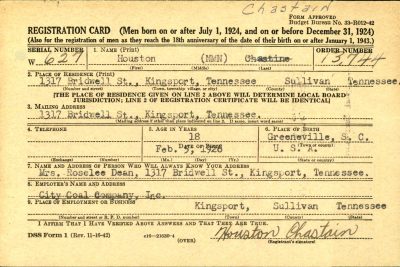 Chastain
FORM APPROVED
Budget Bureau No. 33-R012-42
REGISTRATION CARD (Men born on or after July 1, 1924, and on or before December 31, 1924)
(Also for the registration of men as they reach the 18th anniversary of the date of their birth on or after January 1, 1943.)
SERIAL NUMBER 1. NAME (Print) ORDER NUMBER
W 627 Houston (NMN) Chastine 13,744
2. PLACE OF RESIDENCE (Print)
1317 Bridwell St., Kingsport, Tennessee Sullivan Tennessee,
(Number and street) (Town, township, village, or city) (County) (State)
[THE PLACE OF RESIDENCE GIVEN ON LINE 2 ABOVE WILL DETERMINE LOCAL BOARD
JURISDICTION; LINE 2 OF REGISTRATION CERTIFICATE WILL BE IDENTICAL]
3. MAILING ADDRESS
1317 Bridwell St., Kingsport, Tennessee.
[Mailing address if other than place indicated on line 2. If same, insert word same]
4. TELEPHONE 5. AGE IN YEARS 6. PLACE OF BIRTH
18 Greeneville, S. C.
DATE OF BIRTH
Feb. 5, 1926 U. S. A.
(Exchange) (Number) (Mo.) (Day) (Yr.) (State or country)
7. NAME AND ADDRESS OF PERSON WHO WILL ALWAYS KNOW YOUR ADDRESS
Mrs. Roselee Dean, 1317 Bridwell St., Kingsport, Tennessee.
8. EMPLOYER'S NAME AND ADDRESS
City Coal Company, Inc.
9. PLACE OF EMPLOYMENT OR BUSINESS
Kingsport, Sullivan Tennessee
(Number and street or R. F. D. number) (Town) (County) (State)
I AFFIRM THAT I HAVE VERIFIED ABOVE ANSWERS AND THAT THEY ARE TRUE.
DSS Form 1 (Rev. 11-16-42) (OVER) Houston Chastain
(Registrant's signature)